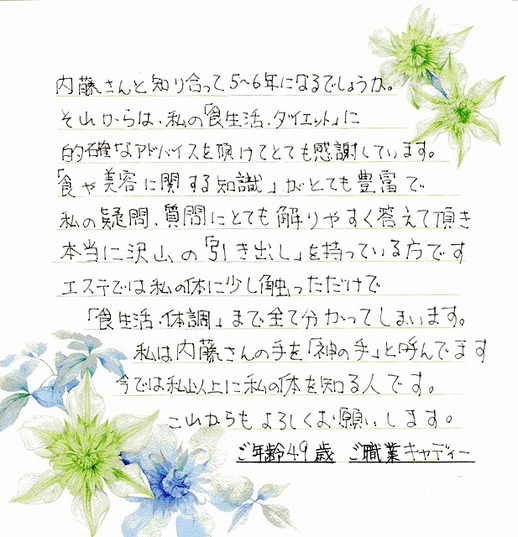 内藤さんと知り合って5~6年になるでしょうか。
それからは、私の「食生活、ダイエット」に
的確なアドバイスを頂けてとても感謝しています。
「食や美容に関する知識」がとても豊富で
私の疑問、質問にとても解りやすく答えて頂き
本当に沢山の「引き出し」を持っている方です
エステでは私の体に少し触っただけで
「食生活、体調」まで全て分かってしまいます。
私は内藤さんの手を「神の手」と呼んでます
今では私以上に私の体を知る人です。
これからもよろしくお願いします。
ご年齢49歳 ご職業キャディー